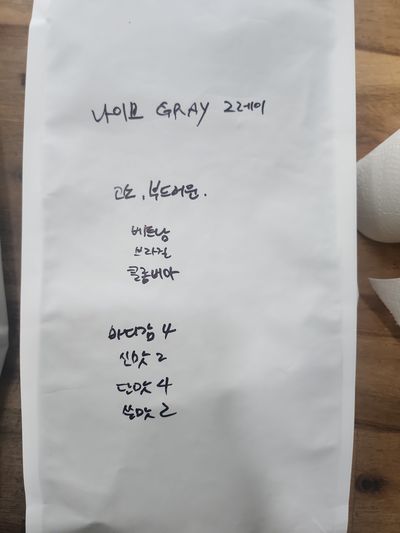 나이브 GRAY 그레이
고소, 부드러운.
베트남
브라질
콜롬비아
바디감 4
신맛 2
단맛 4
쓴맛 2